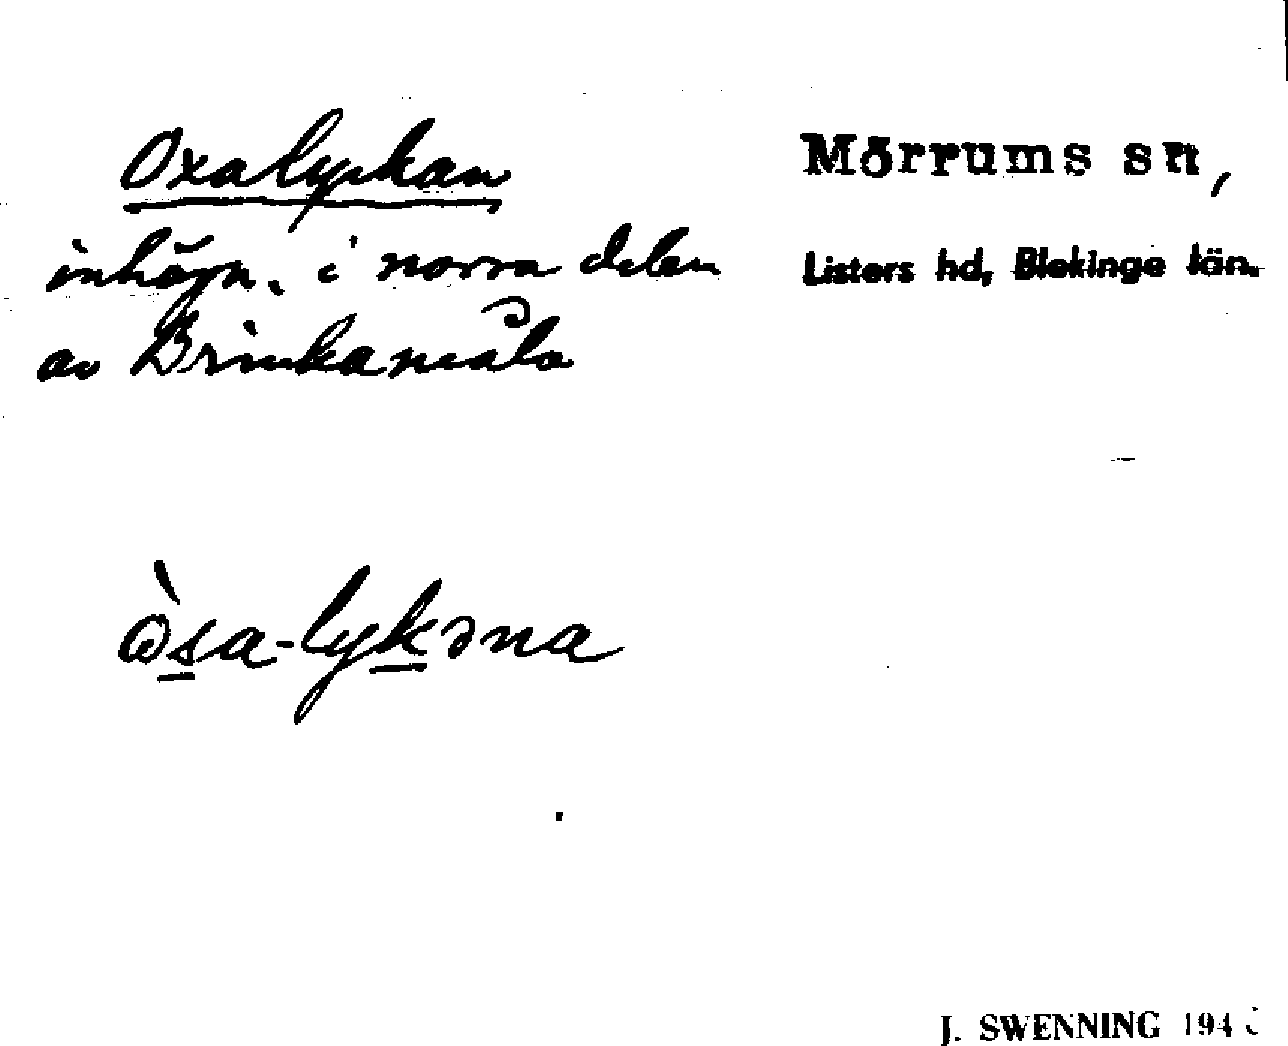 Oxalyckan
inhägn. i norra delen
av Brinkamåla
Mörrums sn,
Listers hd, Blekinge län.
òsa-lykəna
J. SWENNING 194